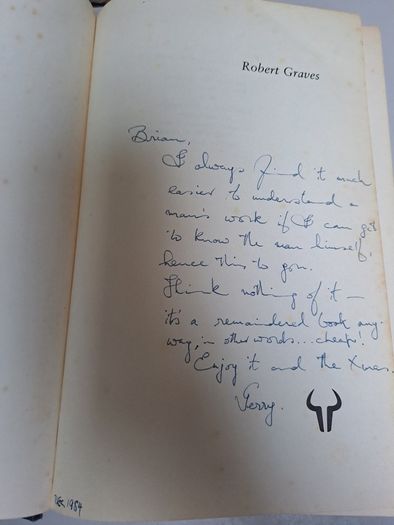 Robert Graves
Brian,
I always find it much
easier to understand a
man's work if I can get
to know the man himself,
hence this to you.
Think nothing of it —
it's a remaindered book any-
way, in other words... cheap!
Enjoy it and the Xmas.
Gerry.
Dec 1984